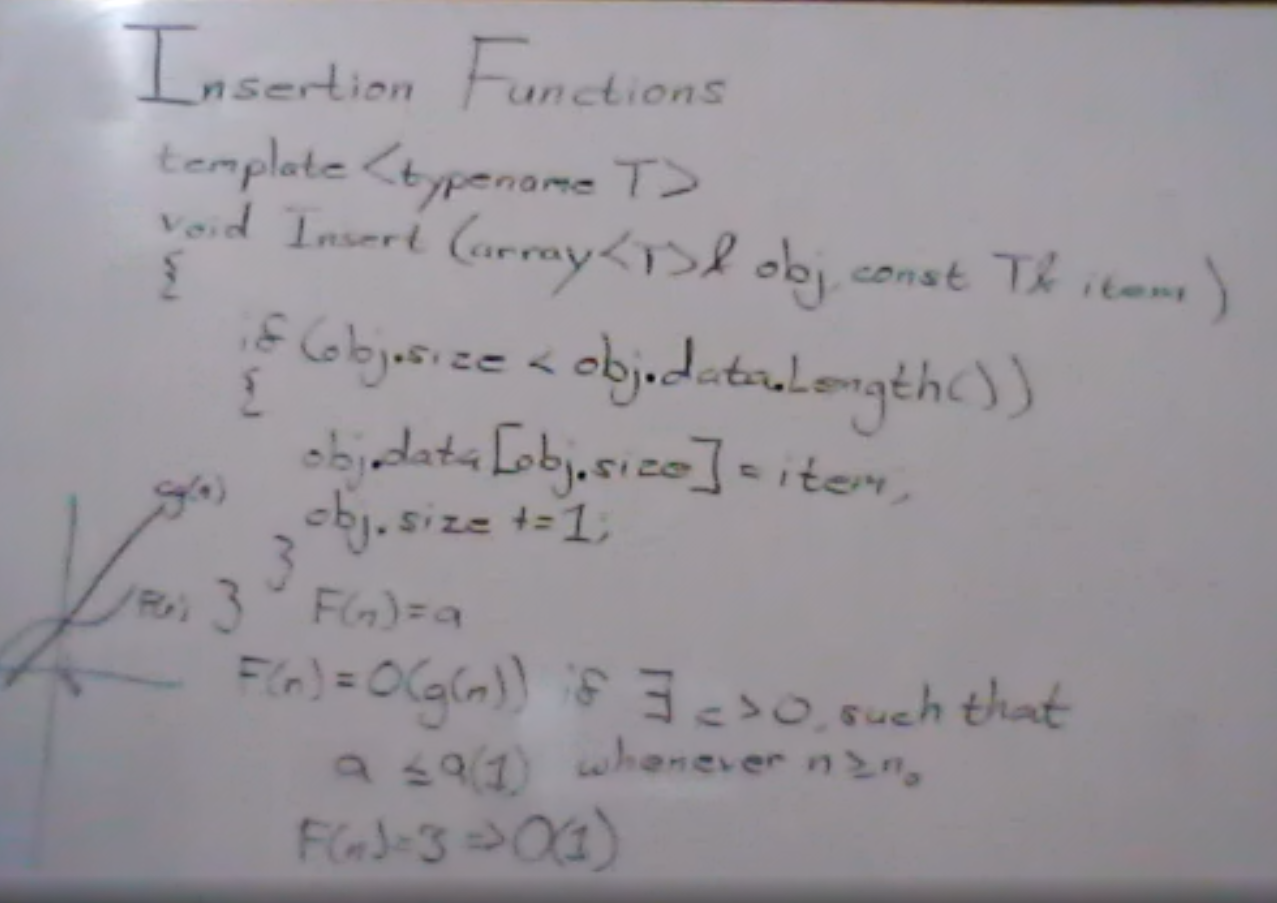 Insertion Functions
template <typename T>
void Insert (array<T>& obj, const T& item)
{
if (obj.size < obj.data.Length())
{
obj.data[obj.size] = item;
obj.size += 1;
}
}
cg(n)
F(n)
F(n)=a
F(n)=O(g(n)) if ∃ c>0, such that
a ≤ a(1) whenever n≥n₀
F(n)=3 => O(1)